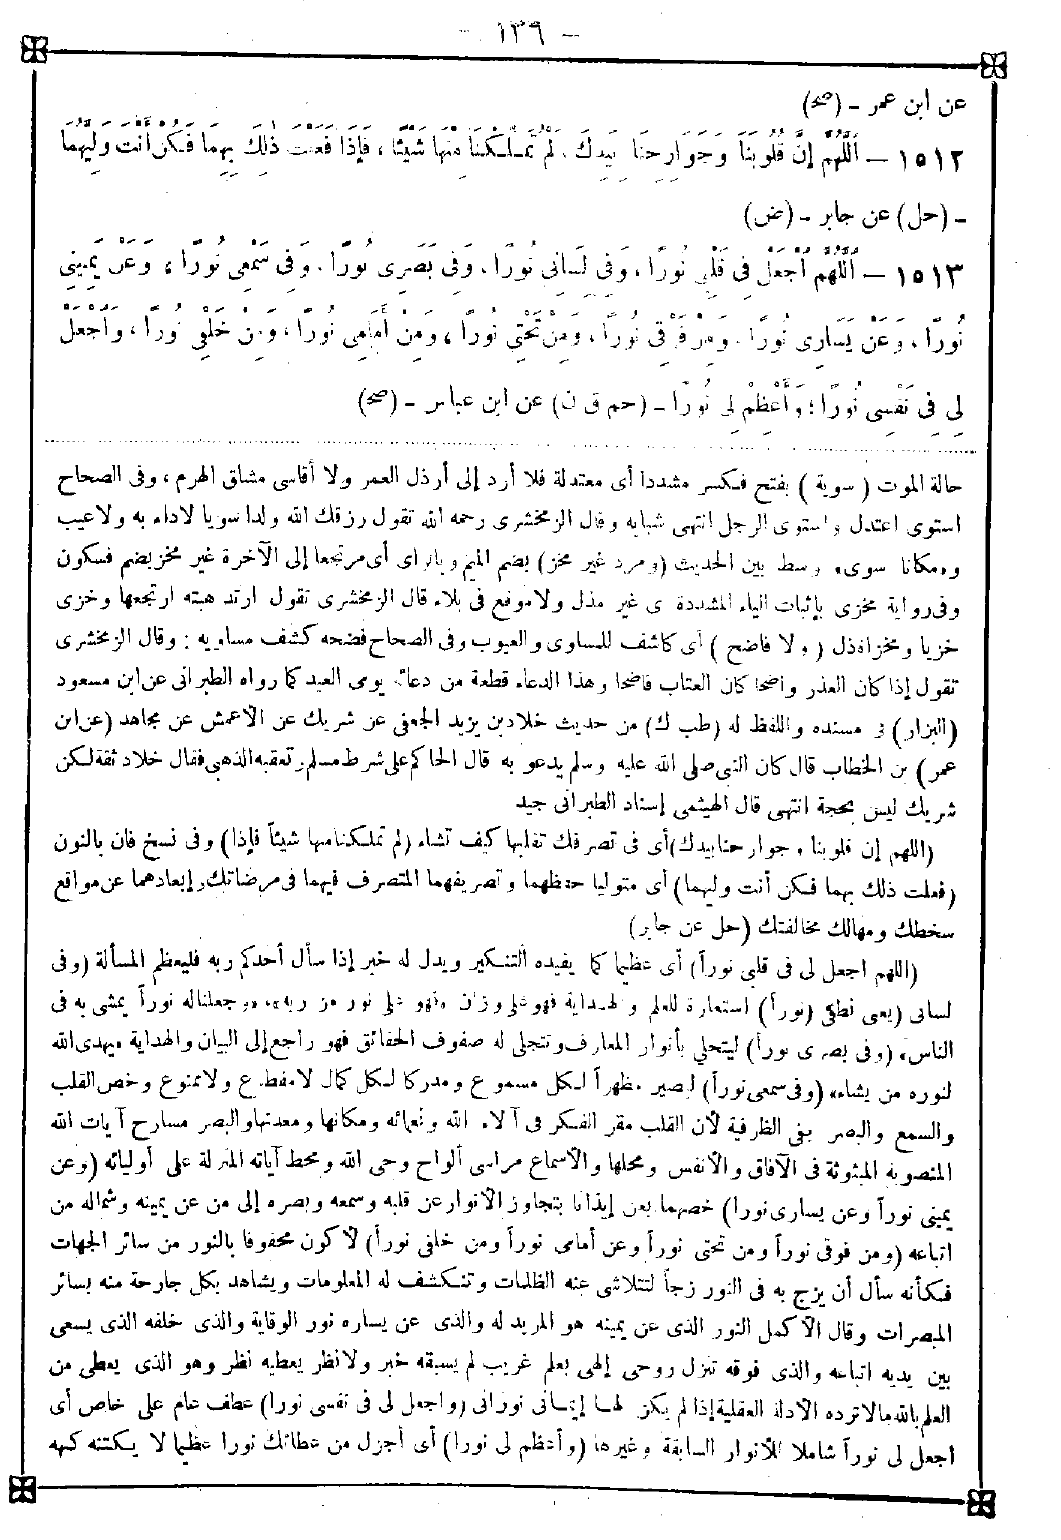 - ١٣٩ -
عن ابن عمر - (صح)
١٥١٢ - اَللّٰهُمَّ إِنَّ قُلُوبَنَا وَجَوَارِحَنَا بِيَدِكَ، لَمْ تُمَلِّكْنَا مِنْهَا شَيْئًا، فَإِذَا فَعَلْتَ ذٰلِكَ بِهِمَا فَكُنْ أَنْتَ وَلِيَّهُمَا
- (حل) عن جابر - (ض)
١٥١٣ - اَللّٰهُمَّ اجْعَلْ فِي قَلْبِي نُورًا، وَفِي لِسَانِي نُورًا، وَفِي بَصَرِى نُورًا، وَفِي سَمْعِى نُورًا، وَعَنْ يَمِينِي
نُورًا، وَعَنْ يَسَارِى نُورًا، وَمِنْ فَوْقِي نُورًا، وَمِنْ تَحْتِي نُورًا، وَمِنْ أَمَامِى نُورًا، وَمِنْ خَلْفِي نُورًا، وَاجْعَلْ
لِي فِي نَفْسِي نُورًا؛ وَأَعْظِمْ لِي نُورًا - (حم ق ن) عن ابن عباس - (صح)
حالة الموت (سوية) بفتح فكسر مشددا أى معتدلة فلا أرد إلى أرذل العمر ولا أقاسى مشاق الهرم، وفى الصحاح
استوى اعتدل واستوى الرجل انتهى شبابه وقال الزمخشرى رحمه الله تقول رزقك الله ولدا سويا لاداء به ولا عيب
«ومكانا سوى» وسط بين الحديث (ومرد غير مخز) بضم الميم وبالزاى أى مرتجعا إلى الآخرة غير مخز بضم فسكون
وفى رواية مخزى بإثبات الياء المشددة أى غير مذل ولا موقع فى بلاء قال الزمخشرى تقول ارتد هبته ارتجعها وخزى
خزيا ومخزاة ذل (ولا فاضح) أى كاشف للمساوى والعيوب وفى الصحاح فضحه كشف مساويه: وقال الزمخشرى
تقول إذا كان العذر واضحا كان العتاب فاضحا وهذا الدعاء قطعة من دعائه يومى العيد كما رواه الطبرانى عن ابن مسعود
(البزار) فى مسنده واللفظ له (طب ك) من حديث خلاد بن يزيد الجعفى عن شريك عن الأعمش عن مجاهد (عن ابن
عمر) بن الخطاب قال كان النبى صلى الله عليه وسلم يدعو به قال الحاكم على شرط مسلم وتعقبه الذهبى فقال خلاد ثقة لكن
شريك ليس بحجة انتهى قال الهيثمى إسناد الطبرانى جيد
(اللهم إن قلوبنا وجوارحنا بيدك) أى فى تصرفك تقلبها كيف تشاء (لم تملكنا منها شيئاً فإذا) وفى نسخ فان بالنون
(فعلت ذلك بهما فكن أنت وليهما) أى متوليا حفظهما وتصريفهما المتصرف فيهما فى مرضاتك وإبعادهما عن مواقع
سخطك ومهالك مخالفتك (حل عن جابر)
(اللهم اجعل لى فى قلبى نوراً) أى عظيما كما يفيده التنكير ويدل له خبر إذا سأل أحدكم ربه فليعظم المسألة (وفى
لسانى (يعنى نطقى (نوراً) استعارة للعلم والهداية فهو على وزان «فهو على نور من ربه»، «وجعلنا له نوراً يمشى به فى
الناس» (وفى بصرى نوراً) ليتحلى بأنوار المعارف وتتجلى له صفوف الحقائق فهو راجع إلى البيان والهداية «يهدى الله
لنوره من يشاء» (وفى سمعى نوراً) ليصير مظهراً لكل مسموع ومدركا لكل كمال لا مقطوع ولا ممنوع وخص القلب
والسمع والبصر بفى الظرفية لأن القلب مقر الفكر فى آلاء الله ونعمائه ومكانها ومعدنها والبصر مسارح آيات الله
المنصوبة المبثوثة فى الآفاق والأنفس ومحلها والأسماع مراسى ألواح وحى الله ومحط آياته المنزلة على أوليائه (وعن
يمينى نوراً وعن يسارى نورا) خصهما بعن إيذانا بتجاوز الأنوار عن قلبه وسمعه وبصره إلى من عن يمينه وشماله من
اتباعه (ومن فوقى نوراً ومن تحتى نوراً وعن أمامى نوراً ومن خلفى نوراً) لأكون محفوفا بالنور من سائر الجهات
فكأنه سأل أن يزج به فى النور زجاً لتتلاشى عنه الظلمات وتنكشف له المعلومات ويشاهد بكل جارحة منه بسائر
المبصرات وقال الأكمل النور الذى عن يمينه هو المريد له والذى عن يساره نور الوقاية والذى خلفه الذى يسعى
بين يديه اتباعه والذى فوقه تنزل روحى إلهى بعلم غريب لم يسبقه خبر ولا نظر يعطيه نظر وهو الذى يعطى من
العلم بالله مالا ترده الأدلة العقلية إذا لم يكن لها إيمانى نورانى (واجعل لى فى نفسى نورا) عطف عام على خاص أى
اجعل لى نوراً شاملا للأنوار السابقة وغيرها (وأعظم لى نورا) أى أجزل من عطائك نورا عظيما لا يكتنه كنهه